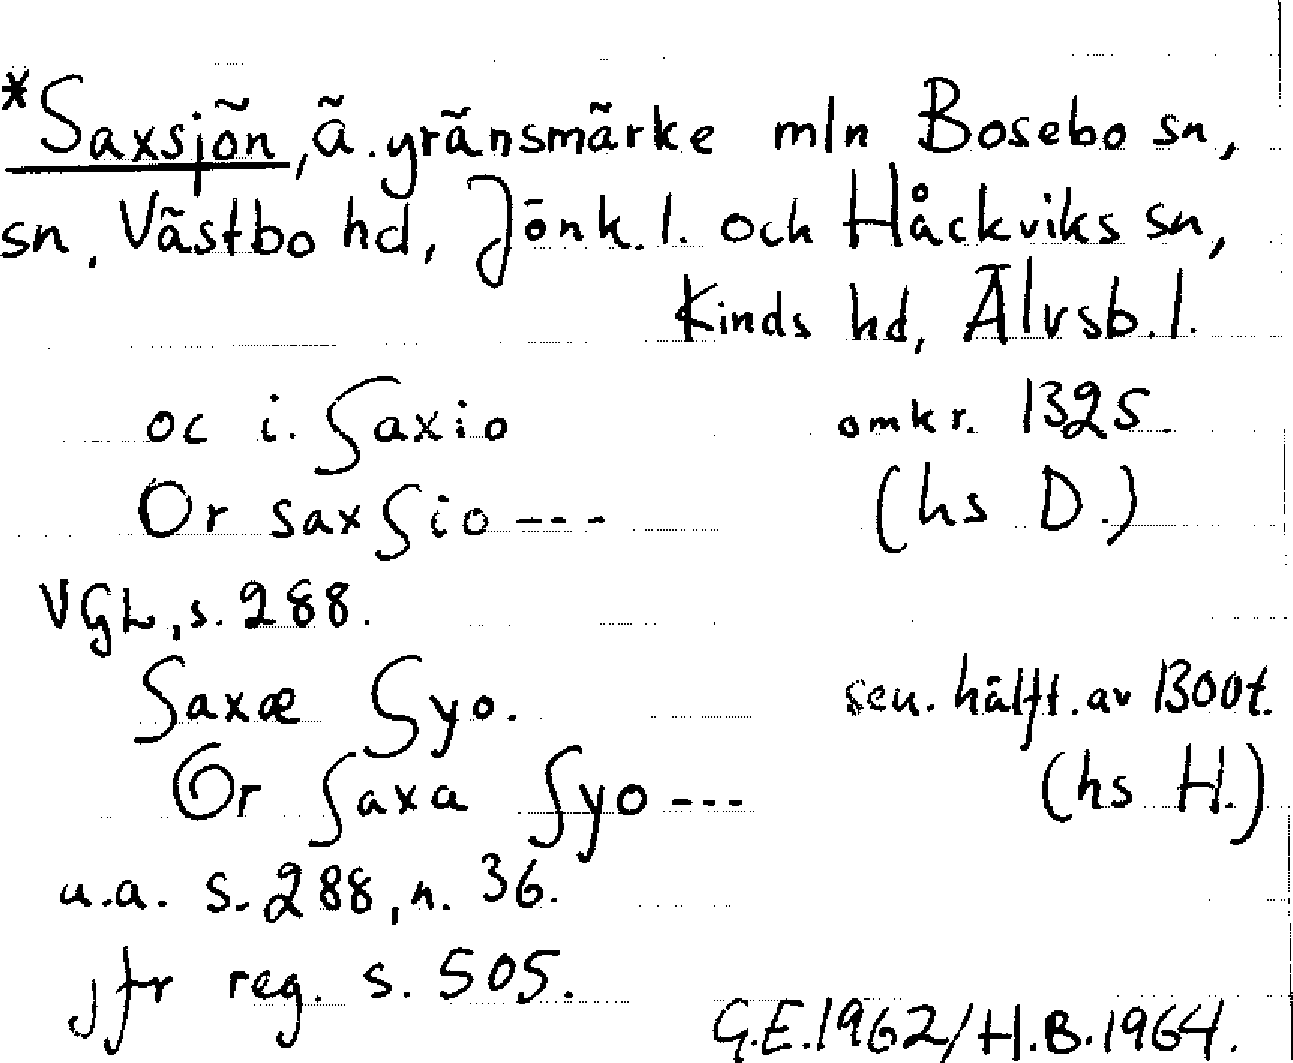 *Saxsjön, ä. gränsmärke mln Bosebo sn,
sn, Västbo hd, Jönk. l. och Håckviks sn,
Kinds hd, Älvsb. l.
oc i. ſaxio omkr. 1325
Or saxſio --- (hs D.)
VGL, s. 288.
Saxæ Syo. sen. hälft. av 1300t.
Or ſaxa ſyo --- (hs H.)
u.a. s. 288, n. 36.
jfr reg. s. 505.
G.E. 1962/H.B. 1964.